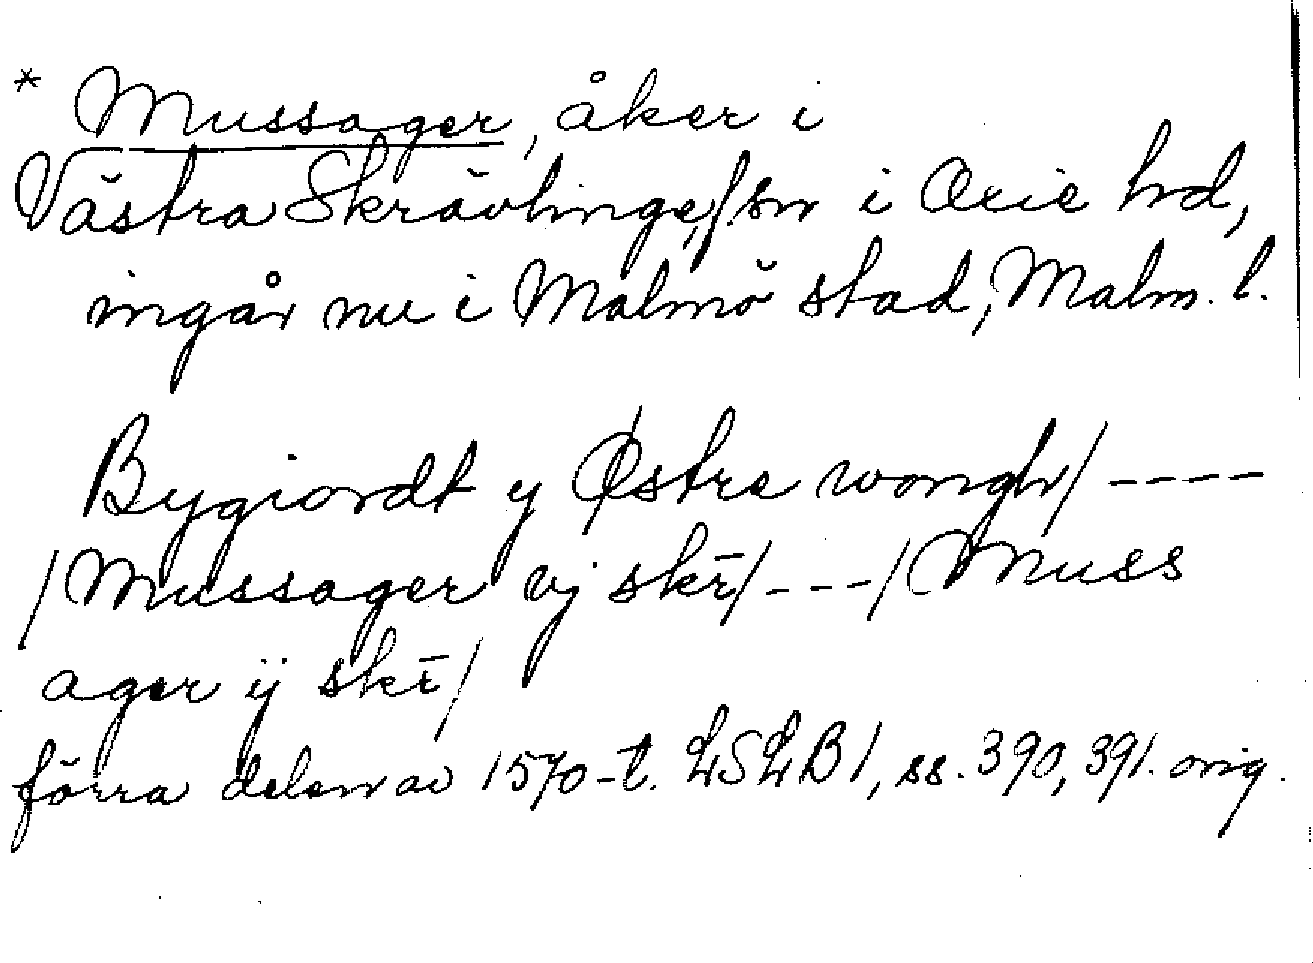 * Mussager, åker i
Västra Skrävlinge, sn i Oxie hd,
ingår nu i Malmö stad, Malm. l.
Bygiordt y Østre wongh/ ----
/Mussager vj skr̄/ ---/ Muss
ager ij skr̄/
förra delen av 1570-t. LSLB 1, ss. 390, 391. orig.